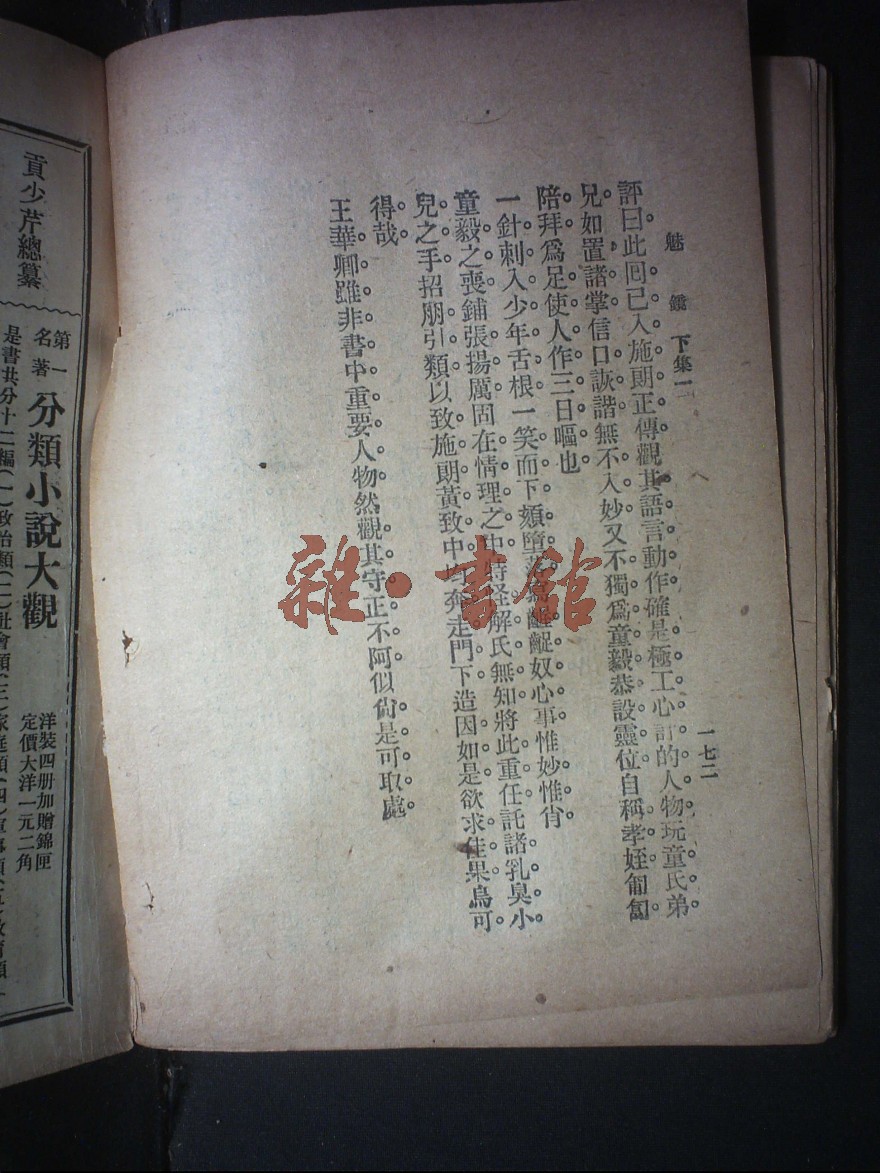 魅鏡 下集二 一七二
評曰。此回已入施朗正傳。觀其語言動作。確是極工心計的人物。玩童氏弟
兄如置諸掌。信口詼諧。無不入妙。又不獨爲童毅恭設靈位。自稱孝姪。匍匐
陪拜爲足使人作三日嘔也
一針刺入少年舌根。一笑而下頦墮落。寫齷齪奴心事。惟妙惟肖
童毅之喪。鋪張揚厲。固在情理之中。特怪解氏無知。將此重任。託諸乳臭小
兒之手。招朋引類。以致施朗黃致中均奔走門下。造因如是。欲求佳果。烏可
得哉。
王華卿雖非書中重要人物。然觀其守正不阿。似尙是可取處
雜·書館
貢少芹總纂
第一名著 分類小說大觀
洋裝四册加贈錦匣
定價大洋一元二角
是書共分十二編(一)政治類(二)社會類(三)家庭類(四)軍事類(五)教育類